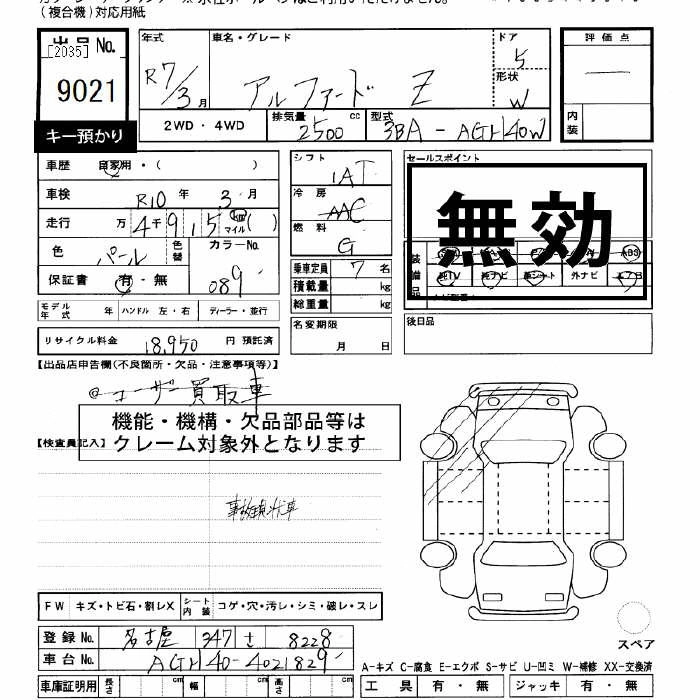 (複合機)対応用紙
出品 No. [2035]
9021
キー預かり
年式 R7/3月
車名・グレード アルファード Z
ドア 5
形状 W
評価点 —
内装
2WD・4WD
排気量 2500 cc
型式 3BA-AGH40W
車歴 自家用・( )
車検 R10年 3月
走行 万4千915 km マイル ( )
色 パール
色替
カラーNo. 089
保証書 有・無
シフト IAT
冷房 AAC
燃料 G
乗車定員 7名
積載量 kg
総重量 kg
セールスポイント
無効
装備品
ABS
純TV 純ナビ 革シート 外ナビ エアB
モデル年式 年 ハンドル 左・右 ディーラー・並行
リサイクル料金 18,950 円 預託済
名変期限 月 日
後日品
【出品店申告欄(不良箇所・欠品・注意事項等)】
@ユーザー買取車
機能・機構・欠品部品等は
クレーム対象外となります
【検査員記入】
事故現状車
FW キズ・トビ石・割レX シート内装 コゲ・穴・汚レ・シミ・破レ・スレ
登録No. 名古屋 347 さ 8228
車台No. AGH40-4021829
車庫証明用 長さ cm 幅 cm 高さ cm
スペア
A-キズ C-腐食 E-エクボ S-サビ U-凹ミ W-補修 XX-交換済
工具 有・無 ジャッキ 有・無